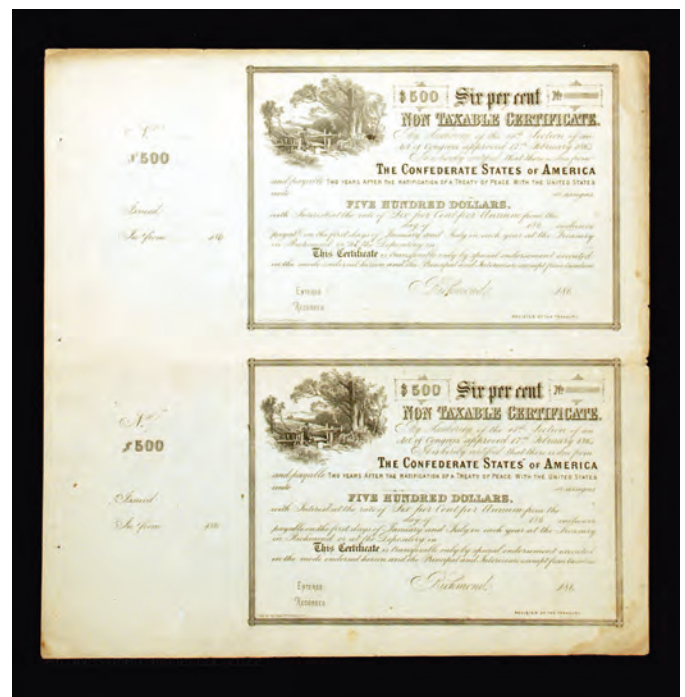 $500
Issued
Int. from 186
$500 Six per cent No
NON TAXABLE CERTIFICATE.
By Authority of the 14th Section of an
Act of Congress approved 17th February 1864
It is hereby certified that there is due from
THE CONFEDERATE STATES OF AMERICA
and payable TWO YEARS AFTER THE RATIFICATION OF A TREATY OF PEACE WITH THE UNITED STATES
unto or assigns
FIVE HUNDRED DOLLARS.
with Interest at the rate of Six per Cent per Annum from the
day of 186 inclusive
payable on the first days of January and July in each year at the Treasury
in Richmond or at the Depository in
This Certificate is transferable only by special endorsement executed
in the mode endorsed hereon and the Principal and Interest are exempt from taxation
ENTERED
RECORDED
Richmond, 186
REGISTER OF THE TREASURY.
No
$500
Issued
Int. from 186
$500 Six per cent No
NON TAXABLE CERTIFICATE.
By Authority of the 14th Section of an
Act of Congress approved 17th February 1864
It is hereby certified that there is due from
THE CONFEDERATE STATES OF AMERICA
and payable TWO YEARS AFTER THE RATIFICATION OF A TREATY OF PEACE WITH THE UNITED STATES
unto or assigns
FIVE HUNDRED DOLLARS.
with Interest at the rate of Six per Cent per Annum from the
day of 186 inclusive
payable on the first days of January and July in each year at the Treasury
in Richmond or at the Depository in
This Certificate is transferable only by special endorsement executed
in the mode endorsed hereon and the Principal and Interest are exempt from taxation
ENTERED
RECORDED
Richmond, 186
REGISTER OF THE TREASURY.